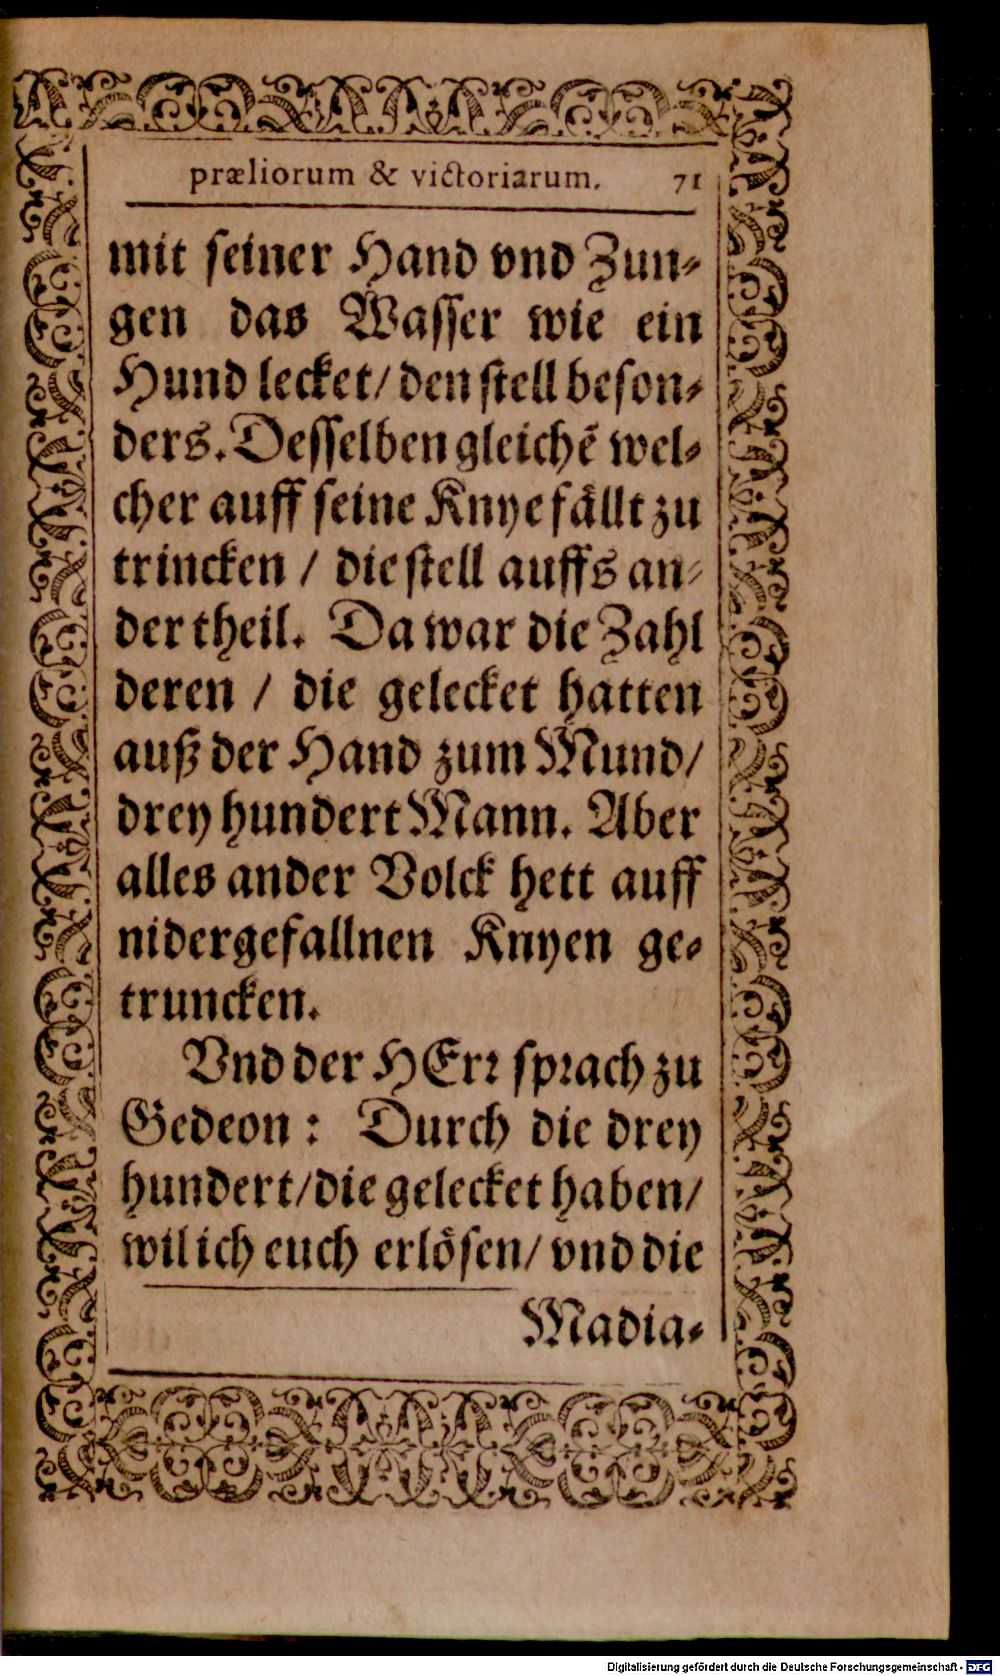 præliorum & victoriarum. 71
mit seiner Hand vnd Zun-
gen das Wasser wie ein
Hund lecket/ den stell beson-
ders. Desselben gleichẽ wel-
cher auff seine Knye fällt zu
trincken / die stell auffs an-
der theil. Da war die Zahl
deren / die gelecket hatten
auß der Hand zum Mund/
drey hundert Mann. Aber
alles ander Volck hett auff
nidergefallnen Knyen ge-
truncken.
Vnd der HErr sprach zu
Gedeon: Durch die drey
hundert/ die gelecket haben/
wil ich euch erlösen/ vnd die
Madia-
Digitalisierung gefördert durch die Deutsche Forschungsgemeinschaft - DFG